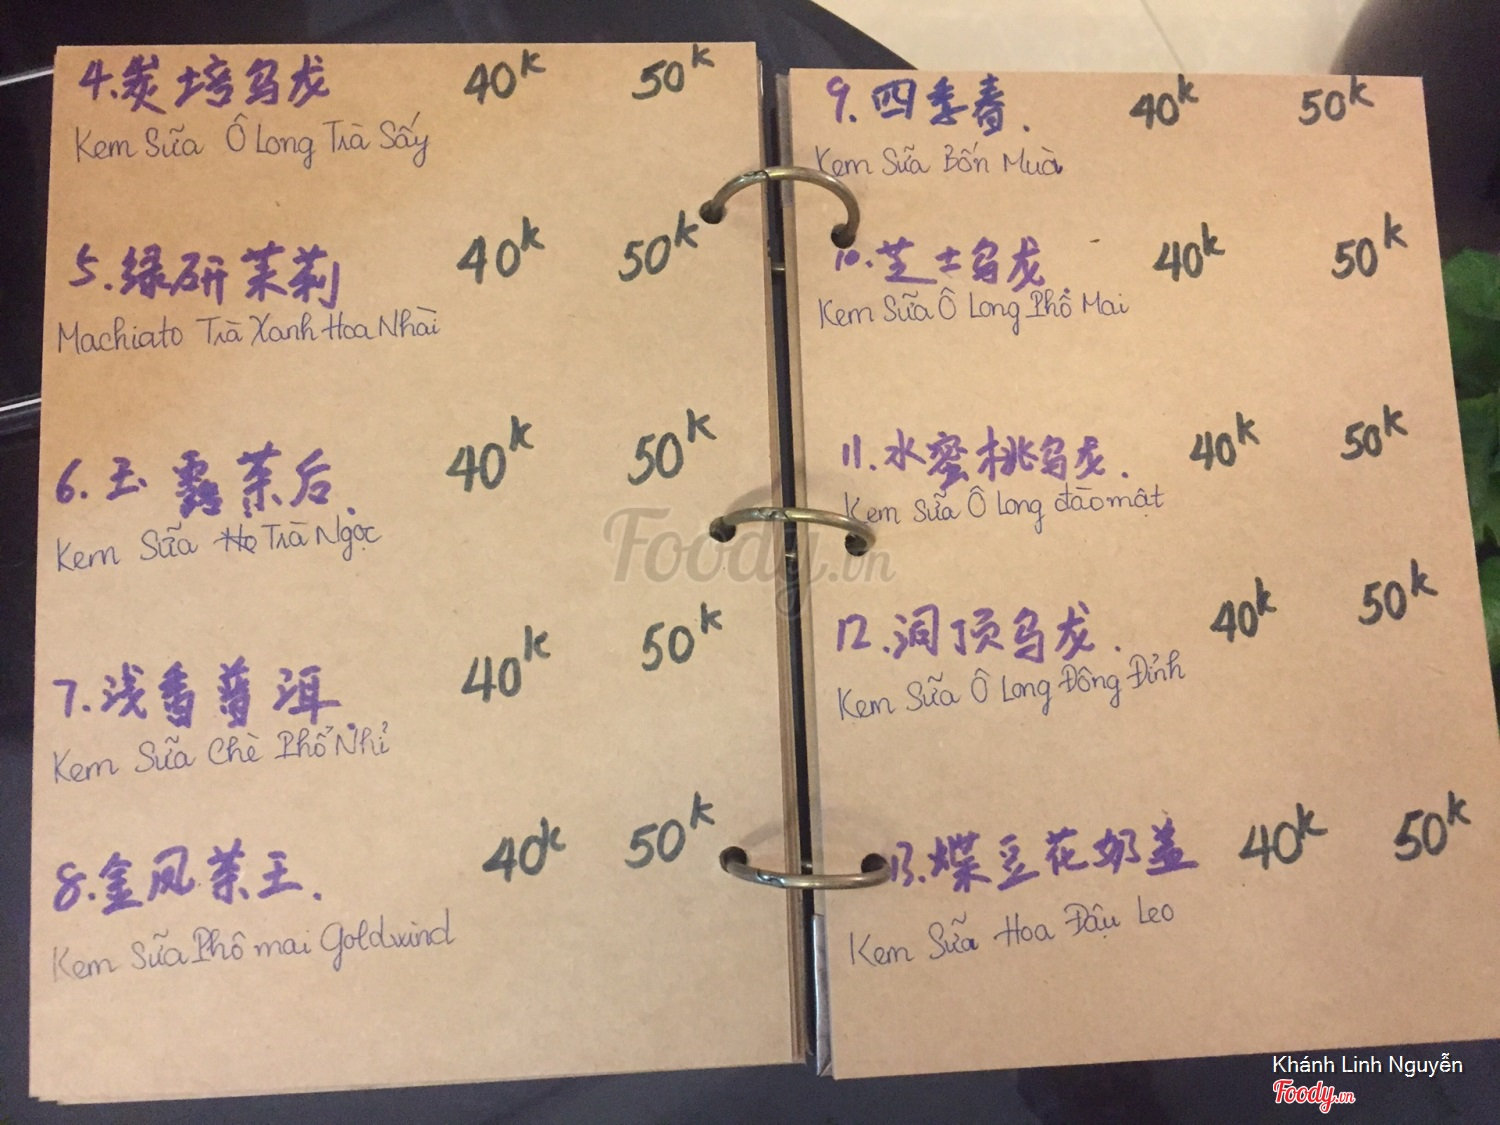 4.炭培乌龙 40k 50k
Kem Sữa Ô Long Trà Sấy
5.绿研茉莉 40k 50k
Machiato Trà Xanh Hoa Nhài
6.玉露茶后. 40k 50k
Kem Sữa Trà Ngọc
7.浅香普洱. 40k 50k
Kem Sữa Chè Phổ Nhỉ
8.金凤茶王. 40k 50k
Kem Sữa Phô mai Goldwind
9.四季春. 40k 50k
Kem Sữa Bốn Mùa
10.芝士乌龙. 40k 50k
Kem Sữa Ô Long Phô Mai
11.水蜜桃乌龙. 40k 50k
Kem Sữa Ô Long đào mật
12.洞顶乌龙. 40k 50k
Kem Sữa Ô Long Đông Đỉnh
13.蝶豆花奶盖 40k 50k
Kem Sữa Hoa Đậu Leo
Foody.vn
Khánh Linh Nguyễn
Foody.vn